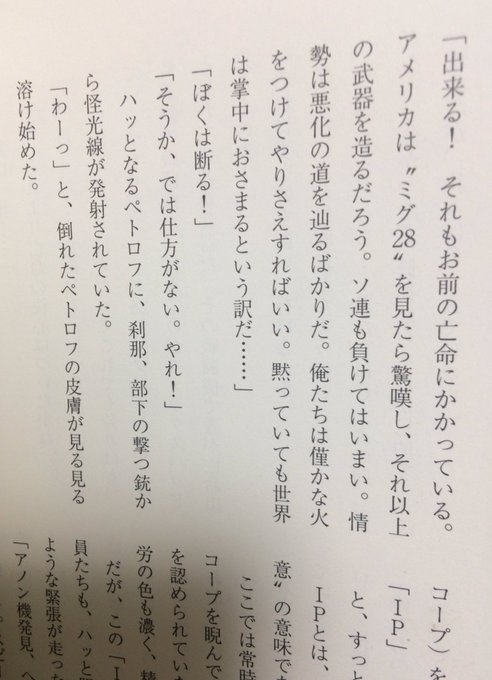 「出来る！　それもお前の亡命にかかっている。
アメリカは〝ミグ28〟を見たら驚嘆し、それ以上
の武器を造るだろう。ソ連も負けてはいまい。情
勢は悪化の道を辿るばかりだ。俺たちは僅かな火
をつけてやりさえすればいい。黙っていても世界
は掌中におさまるという訳だ……」
「ぼくは断る！」
「そうか、では仕方がない。やれ！」
ハッとなるペトロフに、刹那、部下の撃つ銃か
ら怪光線が発射されていた。
「わーっ」と、倒れたペトロフの皮膚が見る見る
溶け始めた。
コープ）を
「ＩＰ」
と、すっと
ＩＰとは、
意〟の意味で
ここでは常時
コープを睨んで
を認められてい
労の色も濃く、精
だが、この「Ｉ
員たちも、ハッと
ような緊張が走った
「アノン機発見、ヘ